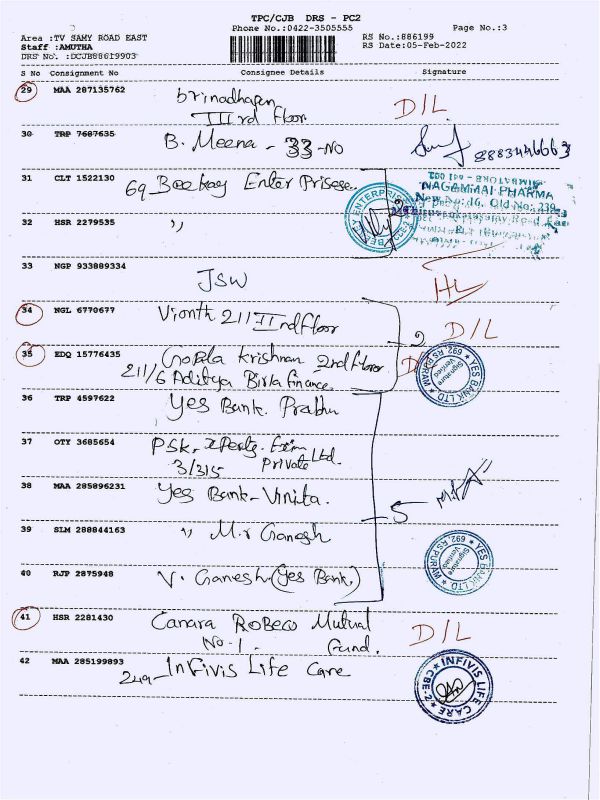 TPC/CJB DRS - PC2
Phone No.:0422-3505555
Page No.:3
Area :TV SAMY ROAD EAST
Staff :AMUTHA
DRS No. :DCJB88619903
RS No.:886199
RS Date:05-Feb-2022
S No Consignment No Consignee Details Signature
29 MAA 287135762
III rd floor D/L
30 TRP 7687635 B. Meena - 33 - NO 8883446663
31 CLT 1522130 69 Enter
NAGAMMAI PHARMA
New No: 16, Old No: 239
32 HSR 2279535 ,,
33 NGP 933889334 JSW HL
34 NGL 6770677 211 II nd floor D/L
35 EDQ 15776435 Gopala Krishnan 2nd floor
211/6 Aditya Birla finance
2
YES BANK LTD
692, RS PURAM
Signature
Verified
36 TRP 4597622 Yes Bank. Prabhu
37 OTY 3685654 PSK.
3/315 Private Ltd.
38 MAA 285896231 Yes Bank - Vinita.
5
39 SLM 288844163 ,, M.r Ganesh
YES BANK LTD
692, RS PURAM
Signature
Verified
40 RJP 2875948 V. Ganesh (Yes Bank.)
41 HSR 2281430 Canara Robeco Mutual
No-1. Fund. D/L
42 MAA 285199893
249 - Infivis Life Care
INFIVIS LIFE CARE
CBE-2